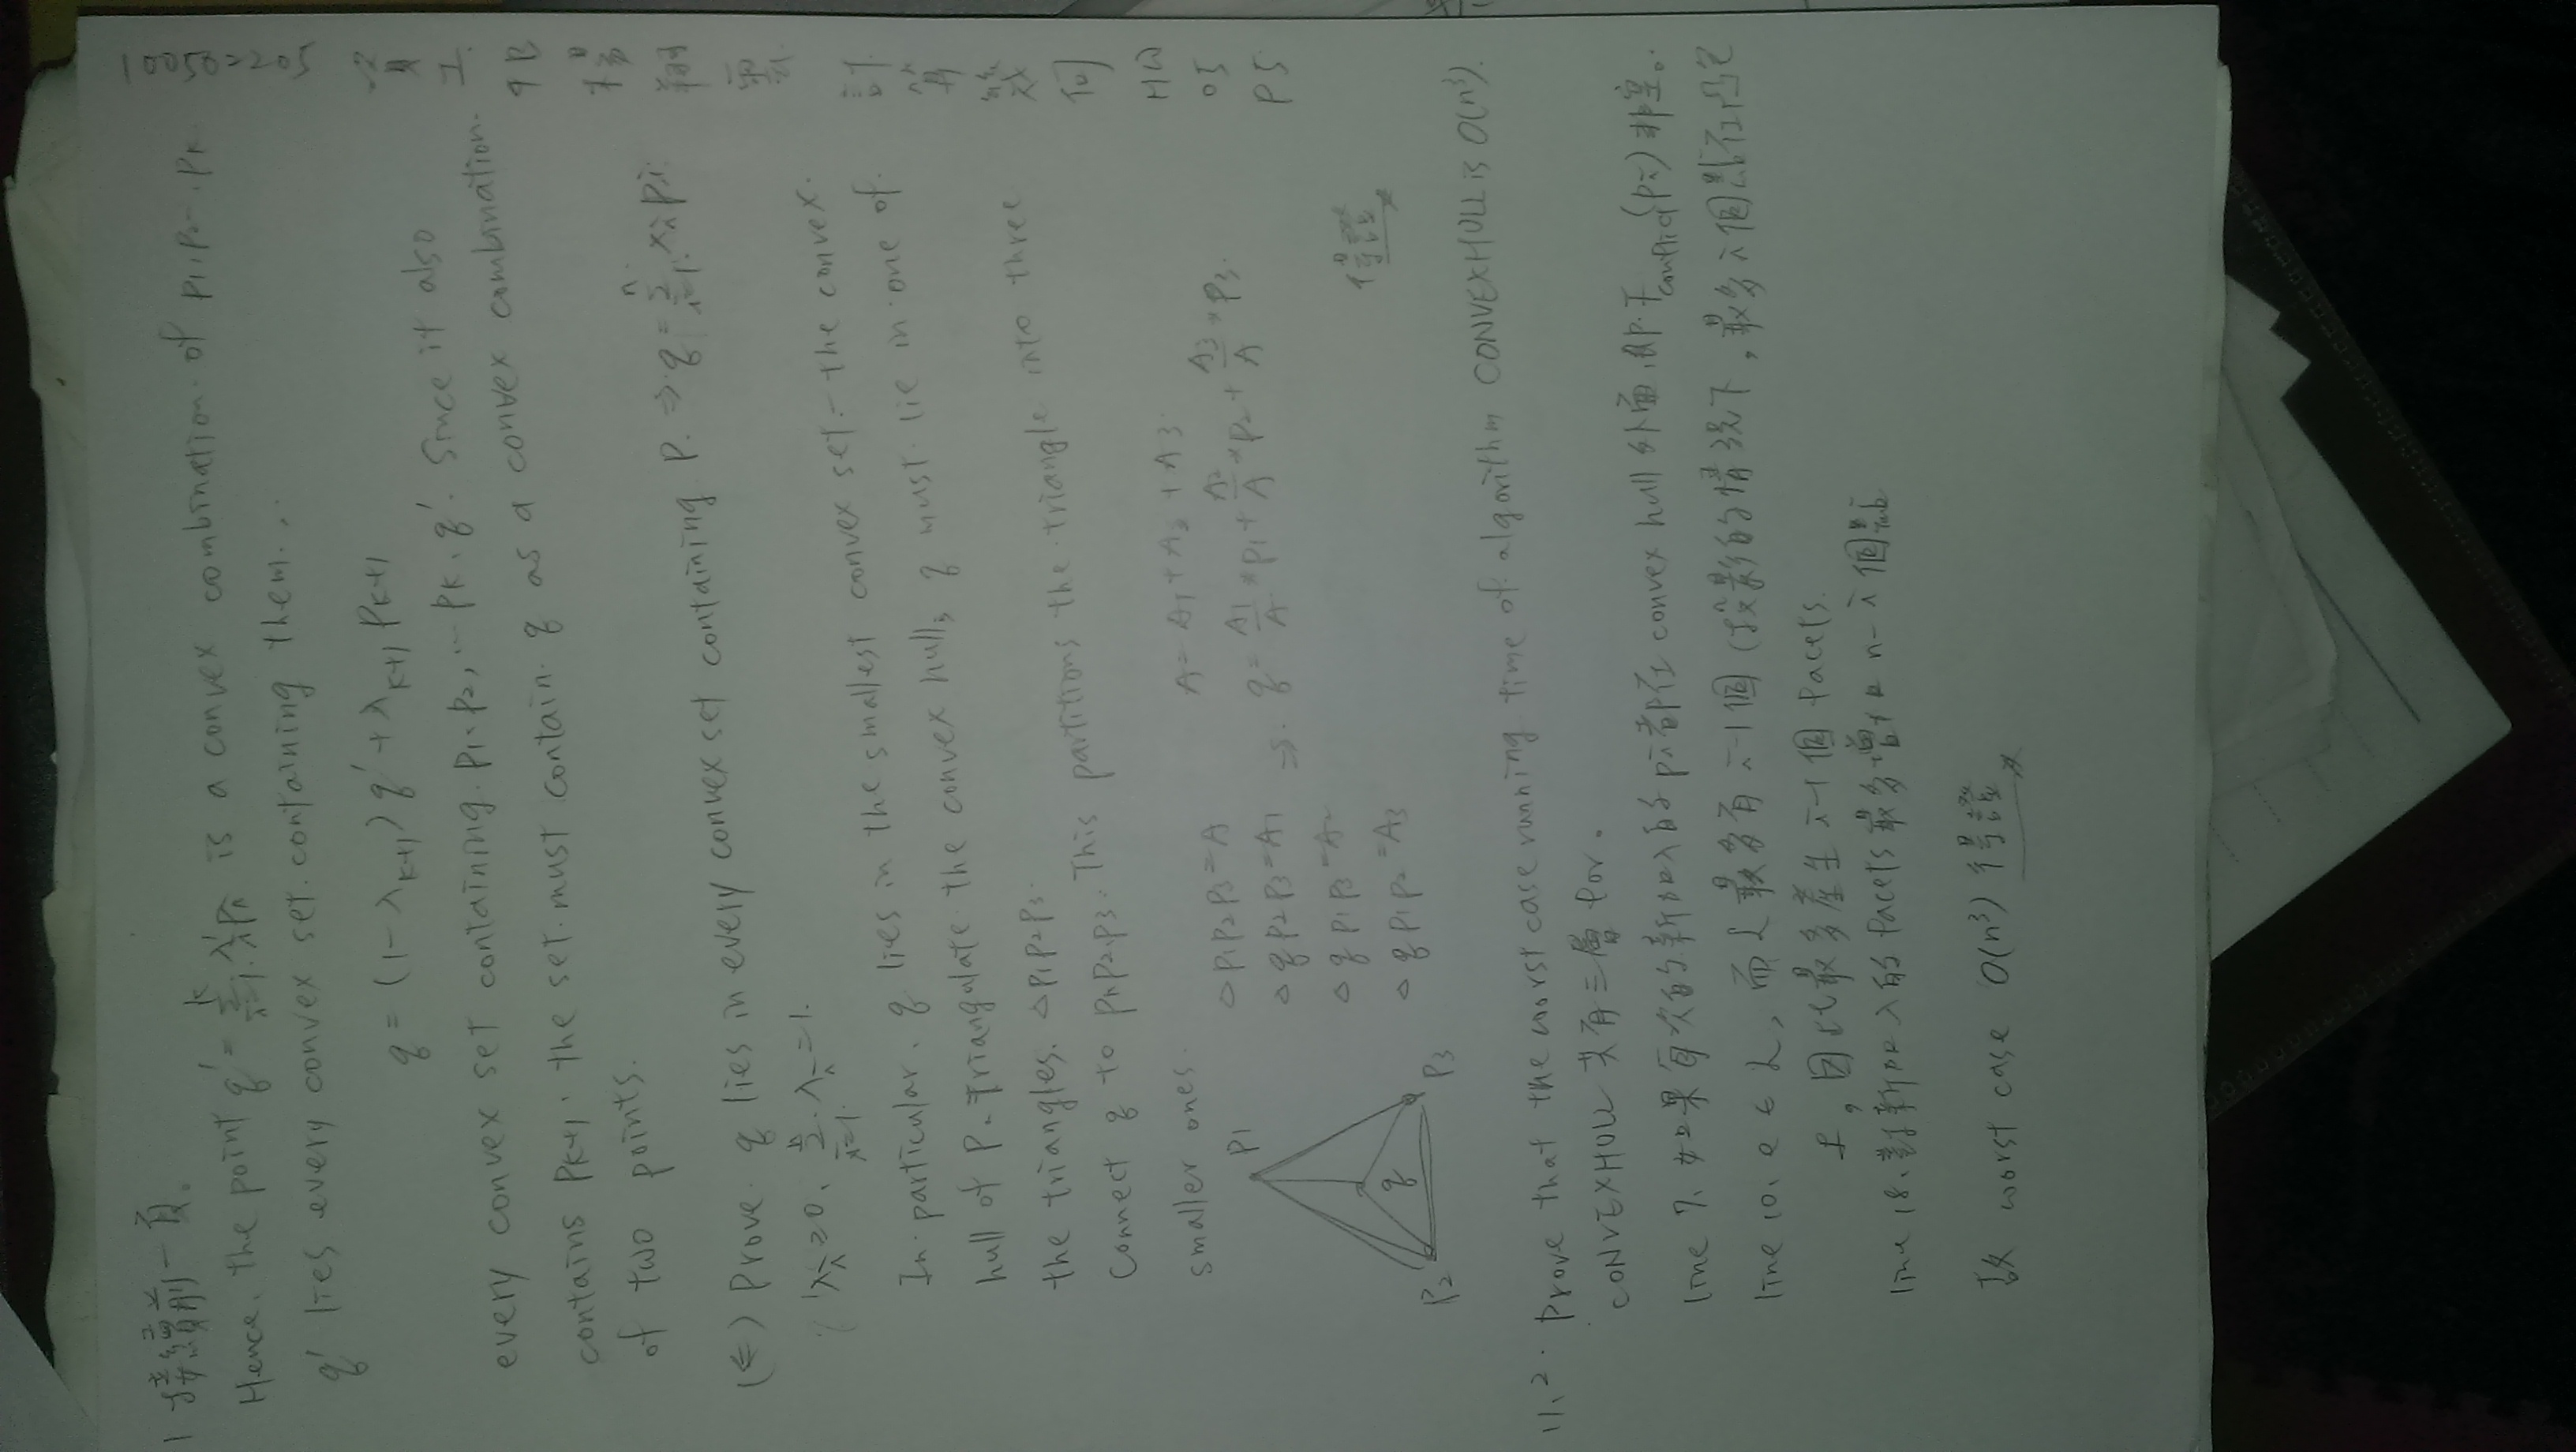 100502205 資工4B 楊翔雲 計算幾何 HW05 P5
1 接續前一頁。
Hence, the point q' = Σ_{i=1}^{k} λi' Pi is a convex combination of P1, P2 ... Pk.
q' lies every convex set containing them.
q = (1-λ_{k+1}) q' + λ_{k+1} P_{k+1}
every convex set containing P1, P2, ... Pk, q'. Since it also
contains P_{k+1}. the set must contain q as a convex combination
of two points.
(⇐) Prove. q lies in every convex set containing P. ⇒ q = Σ_{i=1}^{n} λi Pi
λi ≥ 0, Σ_{i=1}^{n} λi = 1.
In particular, q lies in the smallest convex set - the convex
hull of P. Triangulate the convex hull, q must lie in one of
the triangles. △P1P2P3.
Connect q to P1P2P3. This partitions the triangle into three
smaller ones.
P1
P2
P3
q
△P1P2P3 = A
△qP2P3 = A1
△qP1P3 = A2
△qP1P2 = A3
A = A1 + A2 + A3
⇒ q = A1/A * P1 + A2/A * P2 + A3/A * P3.
得證
11.2. Prove that the worst case running time of algorithm CONVEXHULL is O(n³).
CONVEXHULL 共有三層 for。
line 7. 如果每次的新加入的 Pi 都在 convex hull 外面,即 F_conflict(Pi) 非空。
line 10. e ∈ L, 而 L 最多有 i-1 個 (投影的情況下, 最多 i 個點在凸包
上, 因此最多產生 i-1 個 facets.
line 18. 對新加入的 facets 最多增加 n-i 個點
故 worst case O(n³) 得證